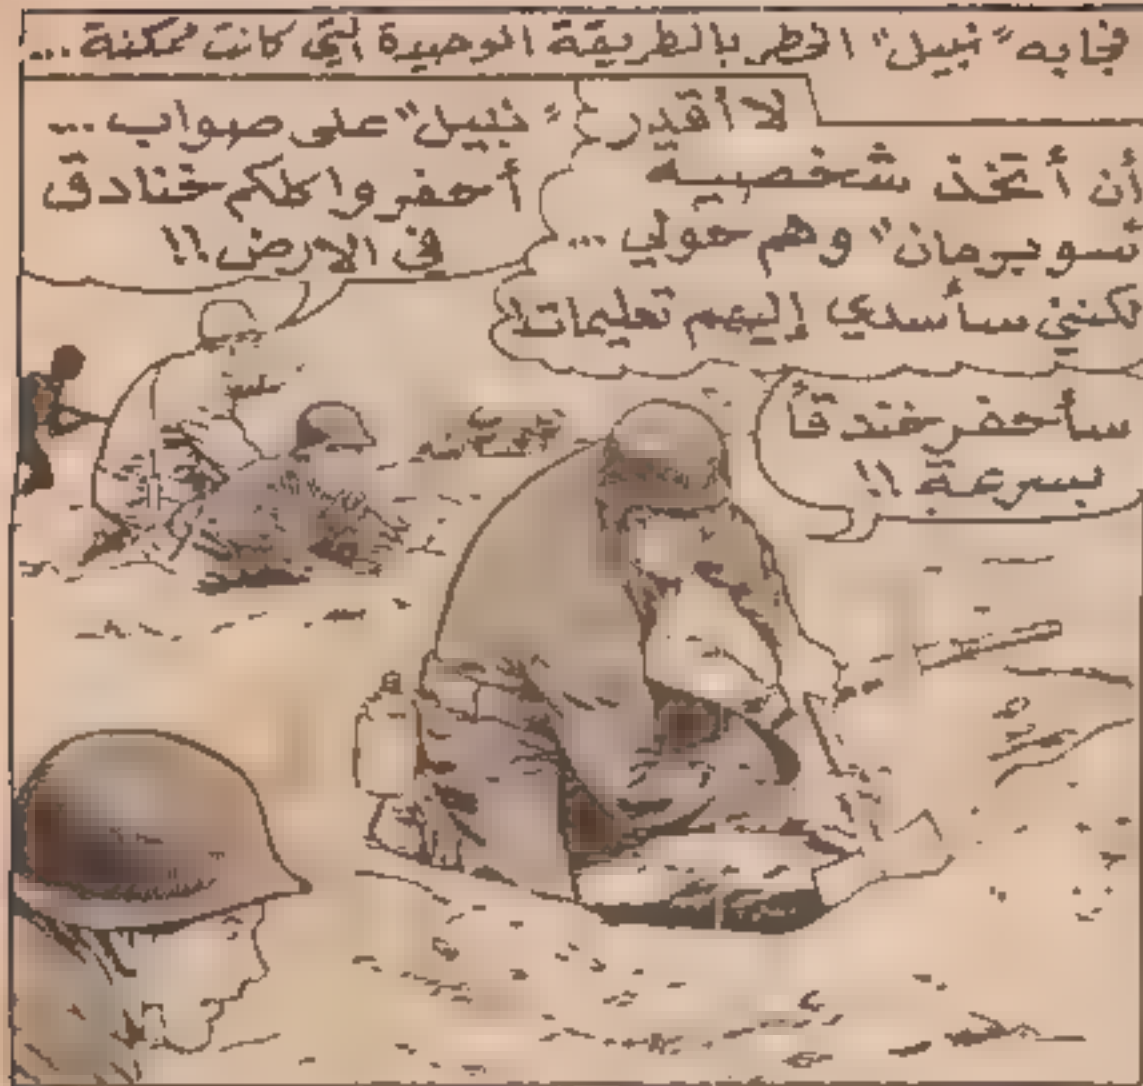 فجابه "نبيل" الخطر بالطريقة الوحيدة التي كانت ممكنة...
لا أقدر
أن أتخذ شخصية
"سوبرمان" وهم حولي ...
لكنني سأسدي إليهم تعليمات!
سأحفر خندقاً
بسرعة !!
"نبيل" على صواب ...
أحفروا كلكم خنادق
في الارض !!